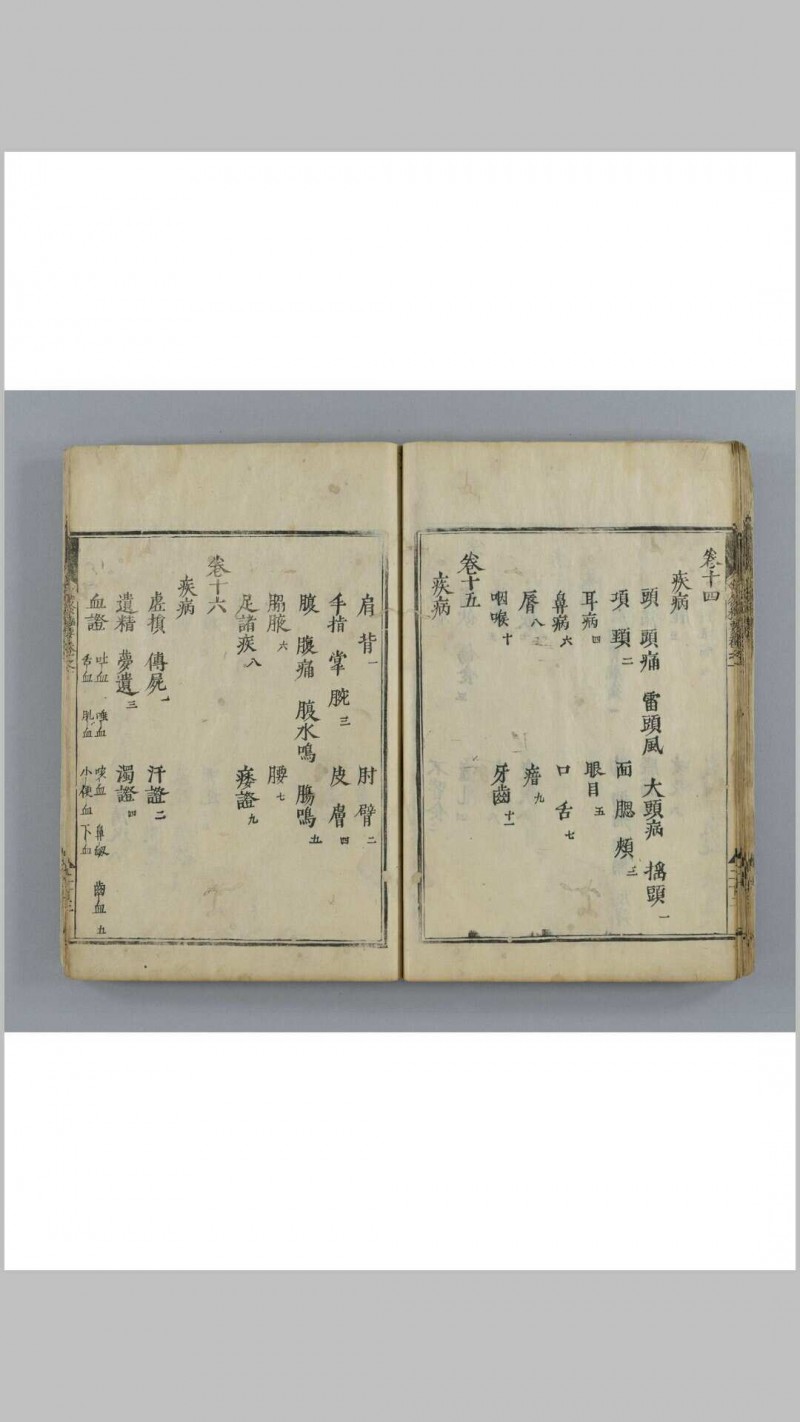 卷十四
疾病
頭 頭痛 雷頭風 大頭病 搖頭 一
項 頸 二 面 腮 頰 三
耳病 四 眼目 五
鼻病 六 口 舌 七
唇 八 瘖 九
咽喉 十 牙齒 十一
卷十五
疾病
肩 背 一 肘 臂 二
手指 掌 腕 三 皮 膚 四
腹 腹痛 腹水鳴 腸鳴 五
脇腋 六 腰 七
足諸疾 八 痿證 九
卷十六
疾病
虛損 傳屍 一 汗證 二
遺精 夢遺 三 濁證 四
血證 吐血 咳血 鼻衄 齒血 舌血 小便血 下血 五